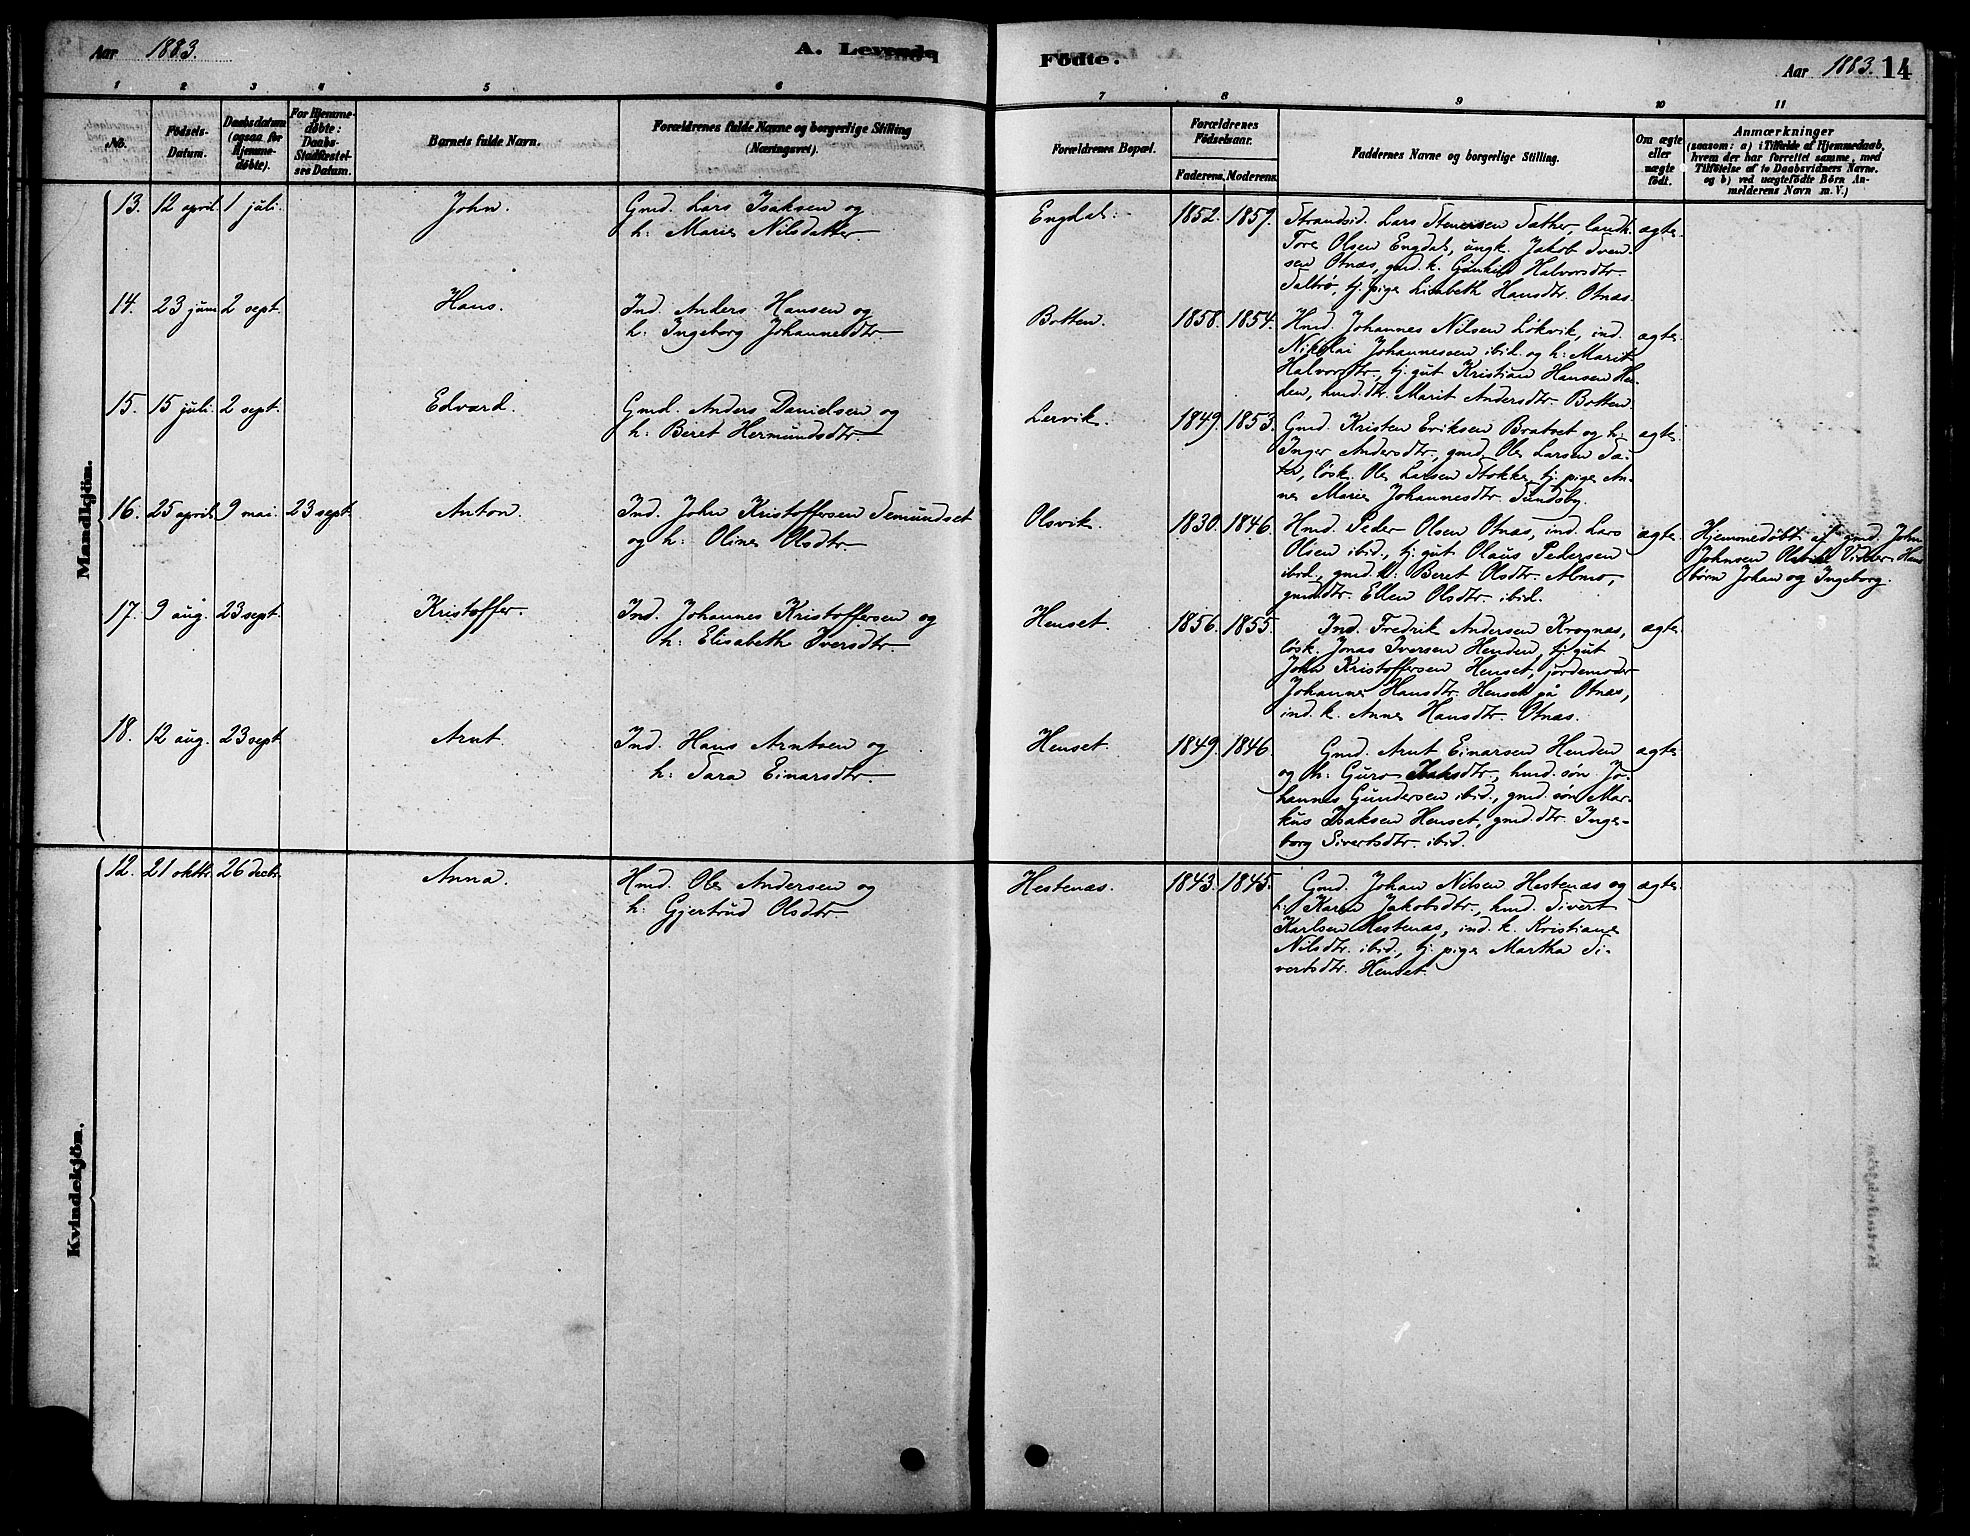 Aar 1883.
A. Levende
Födte.
Aar 1883. 14
1 2 3 4 5 6
7 8 9 10 11
No.
Födsels-
Datum.
Daabsdatum
(ogsaa for
Hjemme-
döbte).
For Hjemme-
döbte:
Daabs-
Stadfæstel-
ses Datum.
Barnets fulde Navn.
Forældrenes fulde Navne og borgerlige Stilling
(Næringsvei).
Forældrenes Bopæl.
Forældrenes
Födselsaar.
Faderens. Moderens.
Faddernes Navne og borgerlige Stilling.
Om ægte
eller
uægte
födt.
Anmærkninger
(saasom: a) i Tilfælde af Hjemmedaab,
hvem der har forrettet samme, med
Tilföielse af to Daabsvidners Navne.
og b) ved uægtefödte Börn An-
melderens Navn m. V.)
Mandkjön.
13. 12 april. 1 juli. John. Gmd. Lars Isaksen og
h: Marie Nilsdatter.
Engdal. 1852. 1857. Strandsid. Lars Stenersen Sæther, landh.
Tore Olsen Engdal, ungk. Jakob Sven-
sen Otnæs, gmd. k. Gunhild Halvorsdtr.
Saltrø, tj. pige Lisabeth Hansdtr. Otnæs.
ægte.
14. 23 juni 2 sept. Hans. Ind. Anders Hansen og
h: Ingeborg Johannesdtr.
Botten. 1858. 1854. Hmd. Johannes Nilsen Løkvik, ind.
Nikolai Johannesen ibid. og h: Marit
Halvorsdtr., tj. gut Kristian Hansen Hen-
den, hmd. dtr. Marit Andersdtr. Botten.
ægte.
15. 15 juli. 2 sept. Edvard. Gmd. Anders Danielsen og
h: Beret Hermundsdtr.
Lervik. 1849. 1853. Gmd. Kristen Eriksen Bratset og h:
Inger Andersdtr., gmd. Ole Larsen Sæ-
ter, løsk. Ole Larsen Stokke, tj. pige An-
ne Marie Johannesdtr. Sundsby.
ægte.
16. 25 april. 9 mai. 23 sept. Anton. Ind. John Kristoffersen Semundset
og h: Oline Olsdtr.
Olsvik. 1830. 1846. Hmd. Peder Olsen Otnæs, ind. Lars
Olsen ibid., tj. gut Olaus Pedersen
ibid., gmd. k: Beret Olsdtr. Almo,
gmd. dtr. Ellen Olsdtr. ibid.
ægte.
Hjemmedøbt af gmd. John
Johnsen Olsvik. Vidner: Hans
børn Johan og Ingeborg.
17. 9 aug. 23 sept. Kristoffer. Ind. Johannes Kristoffersen og
h: Elisabeth Iversdtr.
Henset. 1856. 1855. Ind. Fredrik Andersen Krognæs,
løsk. Jonas Iversen Henden, tj. gut
John Kristoffersen Henset, jordemoder
Johanne Hansdtr. Henset på Otnæs,
ind. k. Anne Hansdtr. Otnæs.
ægte.
18. 12 aug. 23 sept. Arnt. Ind. Hans Arntsen og
h: Sara Einarsdtr.
Henset. 1849. 1846. Gmd. Arnt Einarsen Henden
og h: Guro Isaksdtr., hmd. søn Jo-
hannes Gundersen ibid., gmd. søn Mar-
kus Isaksen Henset, gmd. dtr. Inge-
borg Sivertsdtr. ibid.
ægte.
Kvindekjön.
12. 21 oktbr. 26 decbr. Anna. Hmd. Ole Andersen og
h: Gjertrud Olsdtr.
Hestenæs. 1843. 1845. Gmd. Johan Nilsen Hestenæs og
h: Karen Jakobsdtr., hmd. Sivert
Karlsen Hestenæs, ind. k. Kristiane
Nilsdtr. ibid., tj. pige Martha Si-
vertsdtr. Henset.
ægte.